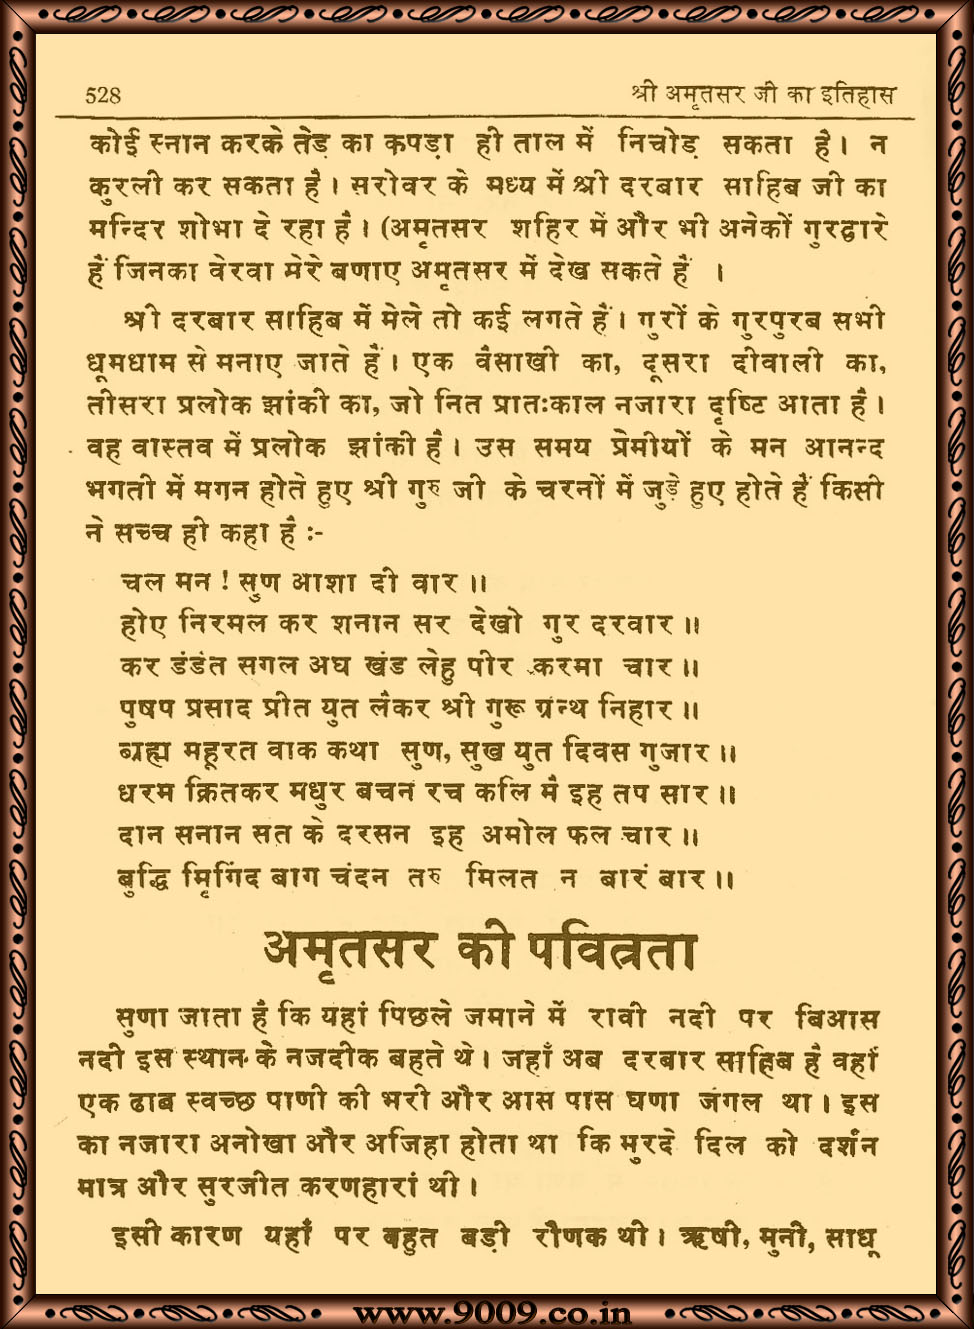 528 श्री अमृतसर जी का इतिहास
कोई स्नान करके तेड़ का कपड़ा ही ताल में निचोड़ सकता है। न
कुरली कर सकता है। सरोवर के मध्य में श्री दरबार साहिब जी का
मन्दिर शोभा दे रहा है। (अमृतसर शहिर में और भी अनेकों गुरद्वारे
हैं जिनका वेरवा मेरे बणाए अमृतसर में देख सकते हैं ।
श्री दरबार साहिब में मेले तो कई लगते हैं। गुरों के गुरपुरब सभी
धूमधाम से मनाए जाते हैं। एक वैसाखी का, दूसरा दीवाली का,
तीसरा प्रलोक झांकी का, जो नित प्रातःकाल नजारा दृष्टि आता है।
वह वास्तव में प्रलोक झांकी है। उस समय प्रेमीयों के मन आनन्द
भगती में मगन होते हुए श्री गुरु जी के चरनों में जुड़े हुए होते हैं किसी
ने सच्च ही कहा है :-
चल मन ! सुण आशा दी वार ॥
होए निरमल कर शनान सर देखो गुर दरवार ॥
कर डंडंत सगल अघ खंड लेहु पीर करमा चार ॥
पुषप प्रसाद प्रीत युत लैकर श्री गुरू ग्रन्थ निहार ॥
ब्रह्म महूरत वाक कथा सुण, सुख युत दिवस गुजार ॥
धरम क्रितकर मधुर बचन रच कलि मै इह तप सार ॥
दान सनान सत के दरसन इह अमोल फल चार ॥
बुद्धि मृिगिंद बाग चंदन तरु मिलत न बारं बार ॥
अमृतसर की पवित्रता
सुणा जाता है कि यहां पिछले जमाने में रावी नदी पर बिआस
नदी इस स्थान के नजदीक बहते थे। जहाँ अब दरबार साहिब है वहाँ
एक ढाब स्वच्छ पाणी की भरी और आस पास घणा जंगल था। इस
का नजारा अनोखा और अजिहा होता था कि मुरदे दिल को दर्शन
मात्र और सुरजीत करणहारां थी।
इसी कारण यहाँ पर बहुत बड़ी रौणक थी। ऋषी, मुनी, साधू
www.9009.co.in